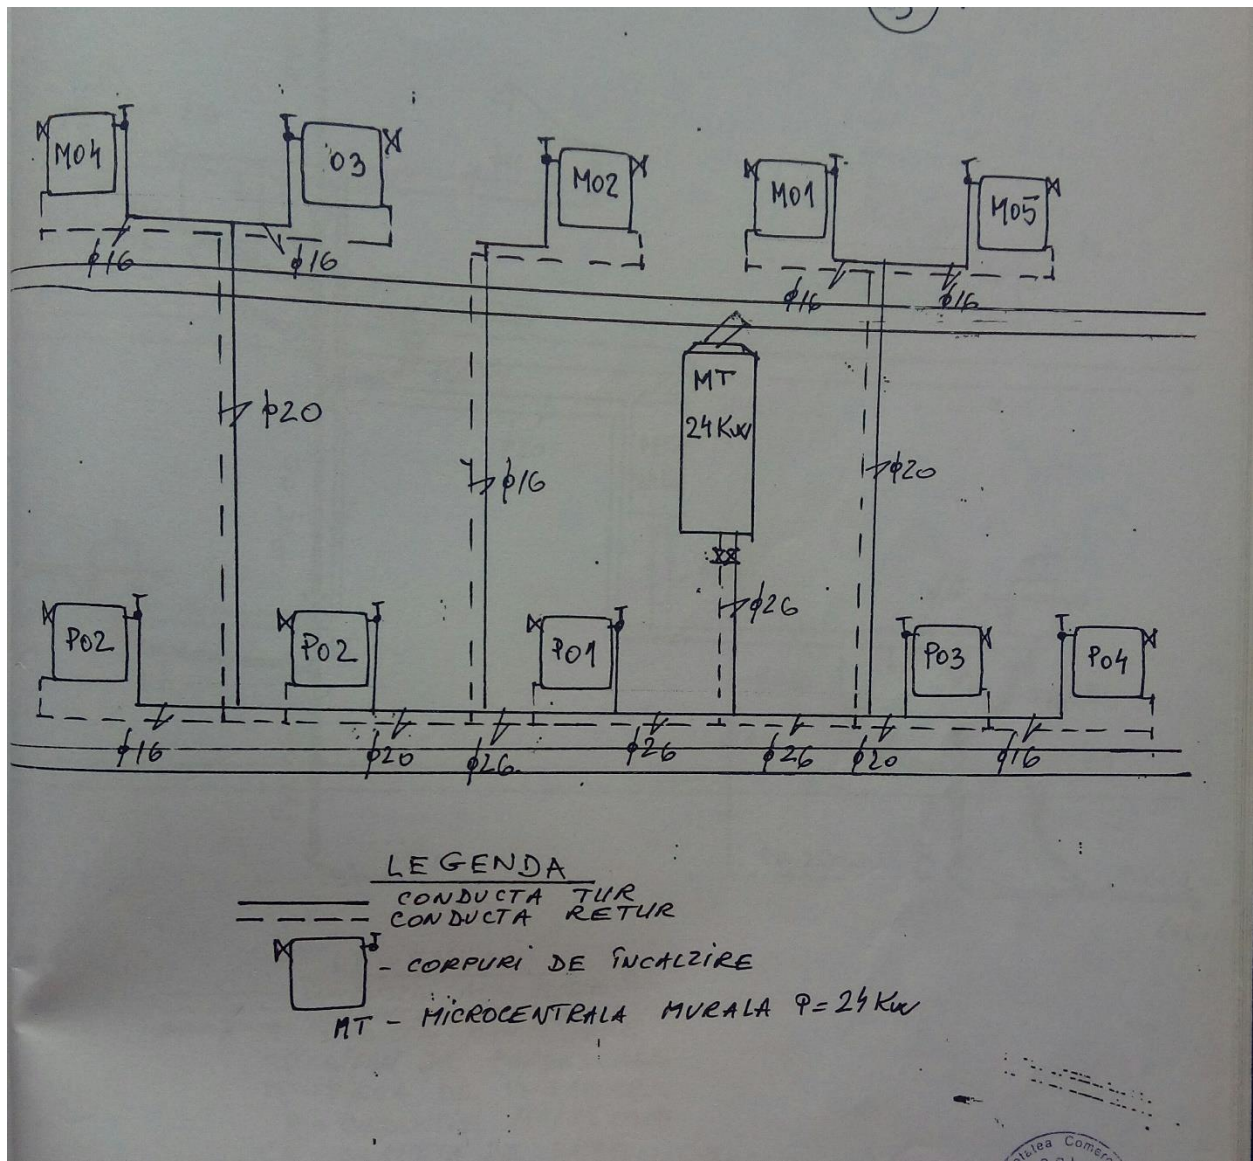 3
M04
03
M02
M01
M05
ϕ16
ϕ16
ϕ16
ϕ16
MT
24Kw
ϕ20
ϕ16
ϕ20
ϕ26
P02
P02
P01
P03
P04
ϕ16
ϕ20
ϕ26
ϕ26
ϕ26
ϕ20
ϕ16
LEGENDA
CONDUCTA TUR
CONDUCTA RETUR
- CORPURI DE ÎNCALZIRE
MT - MICROCENTRALA MURALA P=24Kw